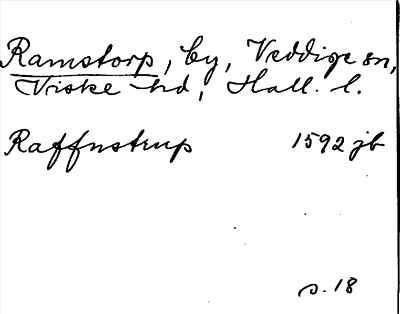 Ramstorp, by, Veddige sn,
Viske hd, Hall. l.
Raffnstrup 1592 jb
s. 18